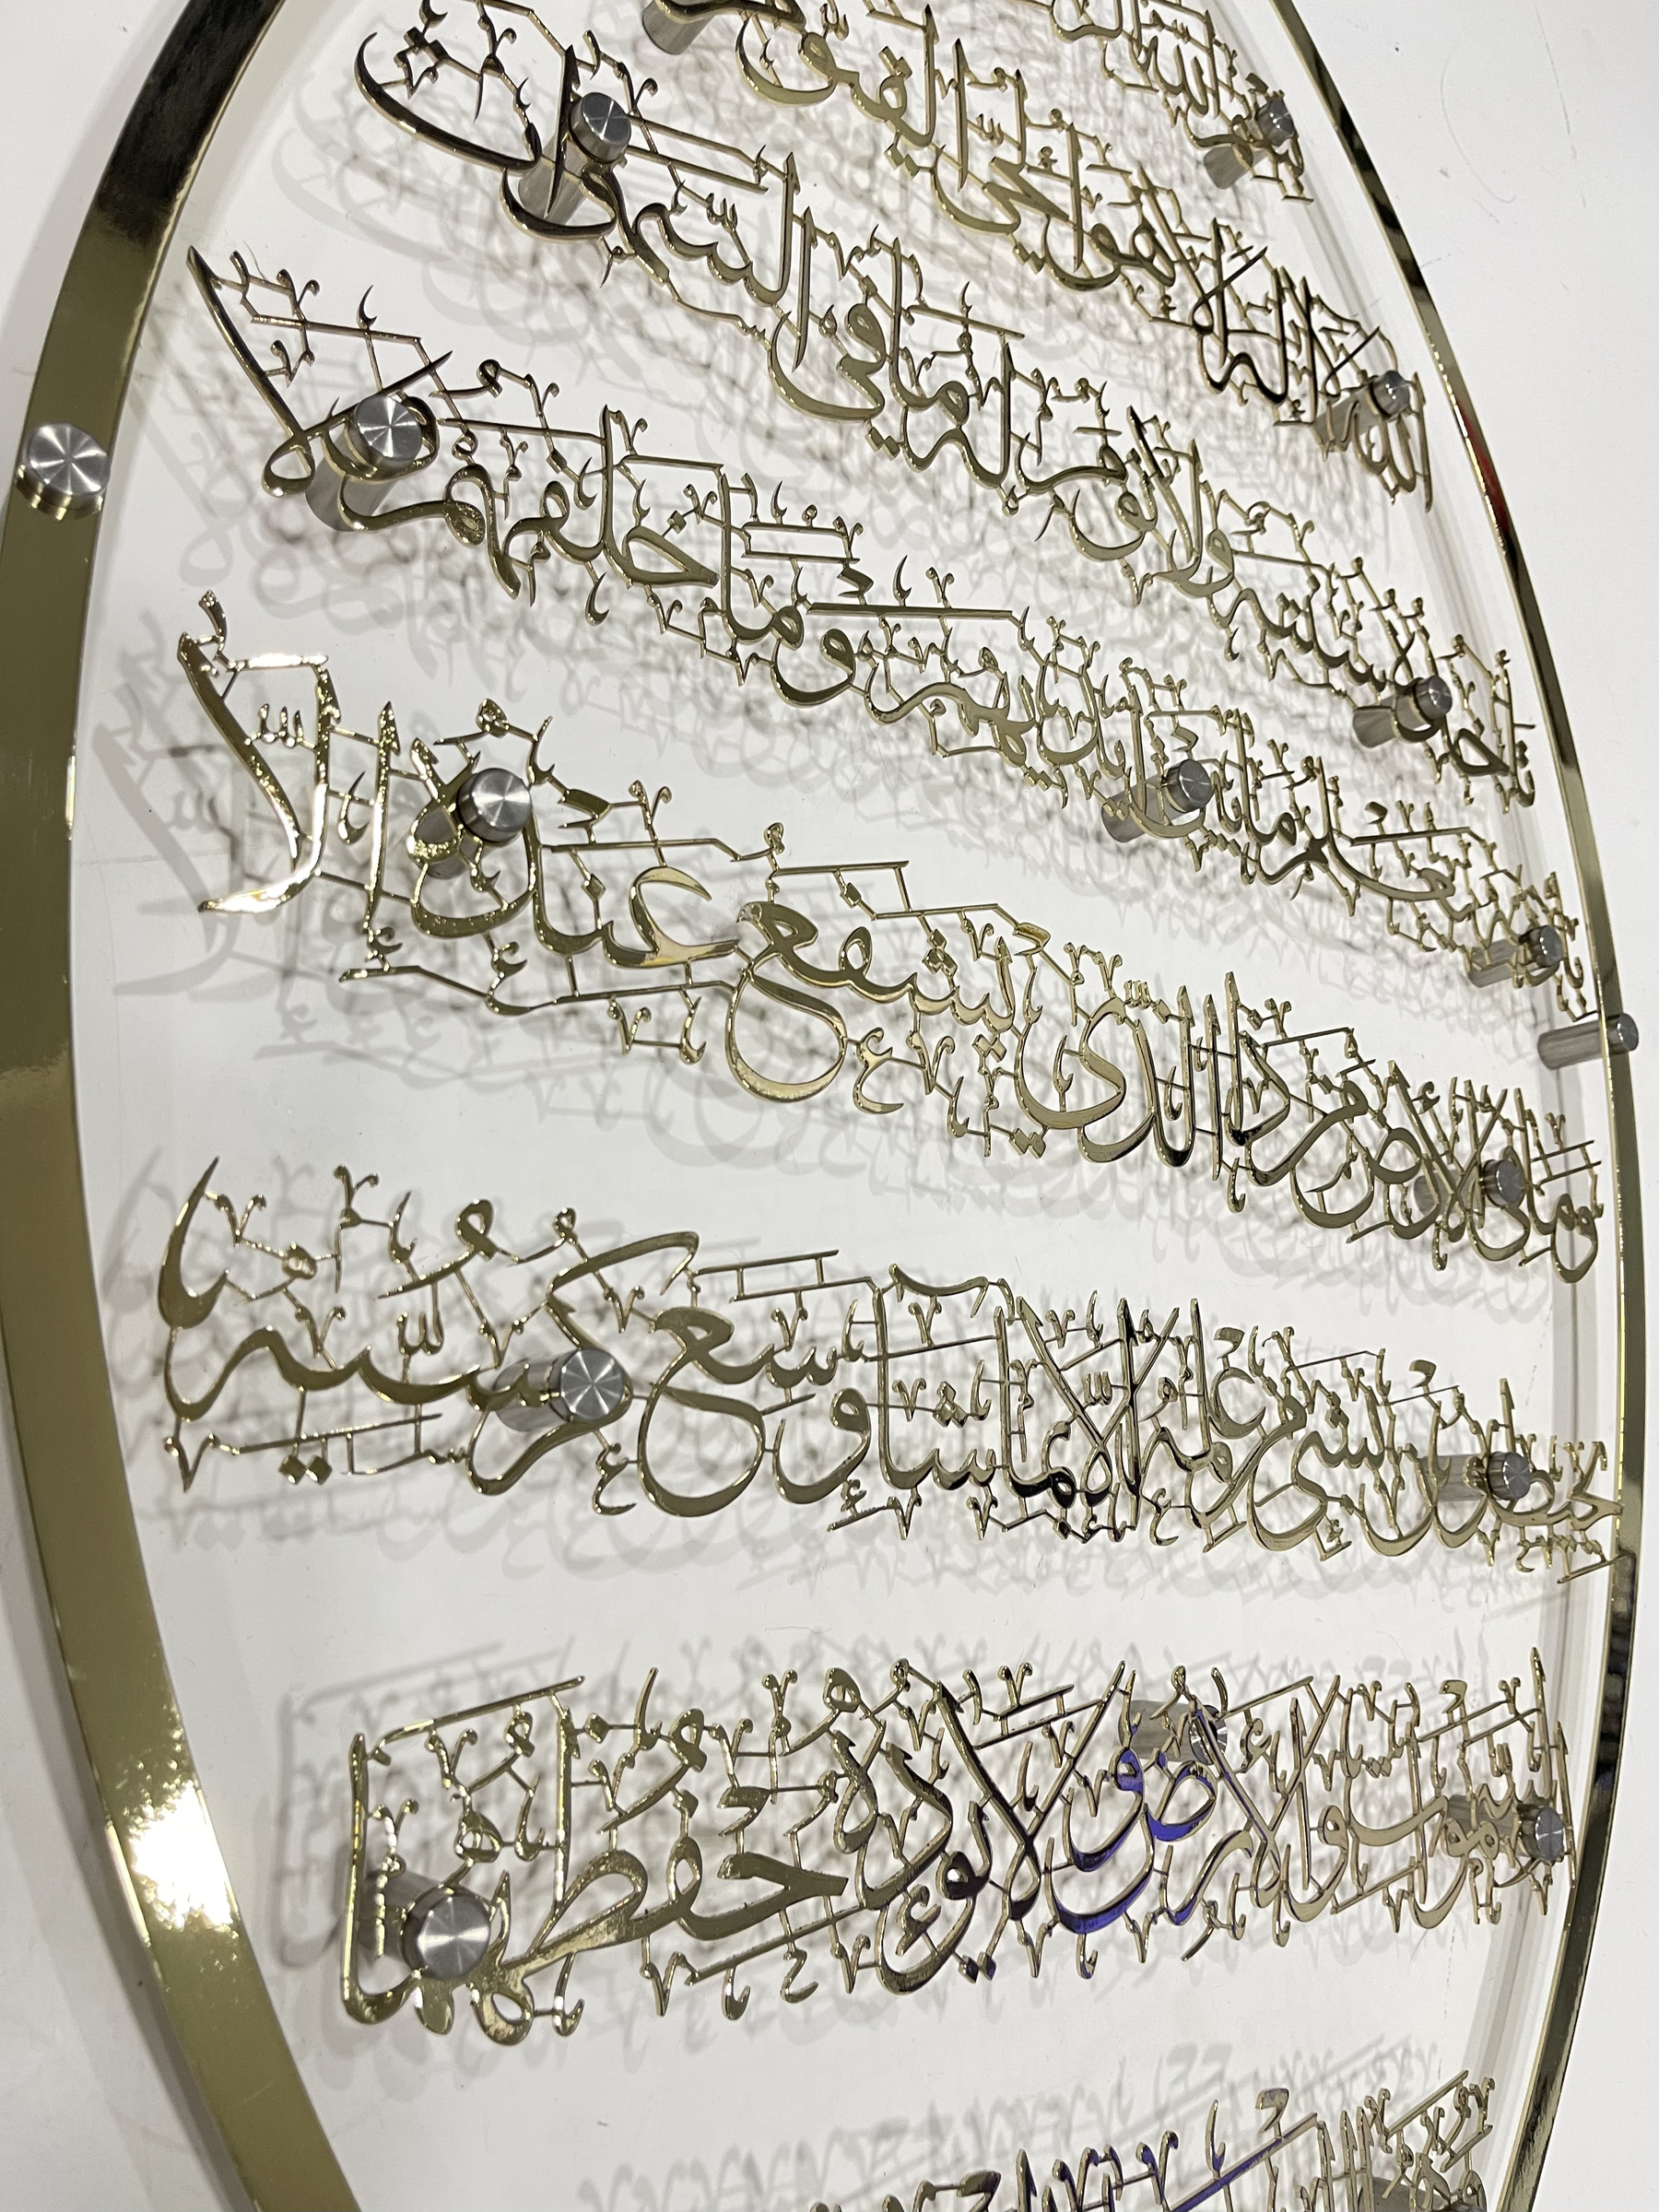 بسم الله
الله لا إله إلا هو الحي القيوم
تأخذه سنة ولا نوم له ما في السموات
بإذنه يعلم ما بين أيديهم وما خلفهم ولا
وما في الأرض من ذا الذي يشفع عنده إلا
يحيطون بشيء من علمه إلا بما شاء وسع كرسيه
السموات والأرض ولا يؤده حفظهما